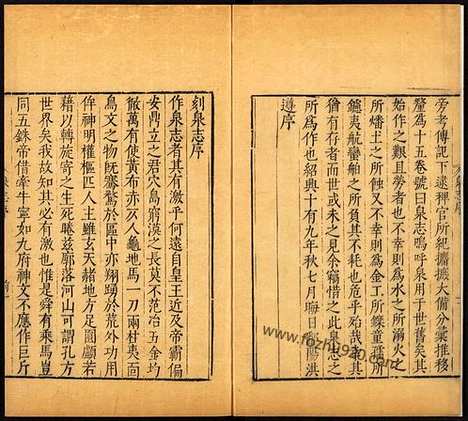 旁考傳記下逮稗官所紀攟摭大備分彙推移
釐為十五卷號曰泉志嗚呼泉用于世舊矣其
始作之艱且勞者也不幸則為水之所溺火之
所燔土之所蝕又不幸則為金工所鑠童孺所
鐵夷航蠻舶之所負其不耗也危乎始哉其
猶有存者而予得之余竊惜之此泉志之
所為作也紹興十有九年秋七月晦日鄱陽洪
遵序
刻泉志序
作泉志者其有激乎何遠自皇王近及帝霸偏
安鼎立之君穴島窮漠之長莫不范冶五金均
敝萬有使黃布亦云人龜地馬一刀兩村夷面
鳥文之物既驚騖於區中亦翔踴於荒外功用
侔神明權樞匹人主雖玄天赭地方足圓顱若
藉以轉旋寄之生死睠茲廓落河山可謂孔方
世界矣我故知其必有激也惟是舜有乘馬豈
同五銖帝借牽牛寧如九府神文不應作巨斤
www.fozhu920.com